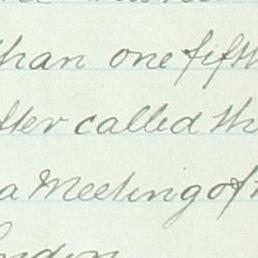 than one fifth
after called th
a Meeting of